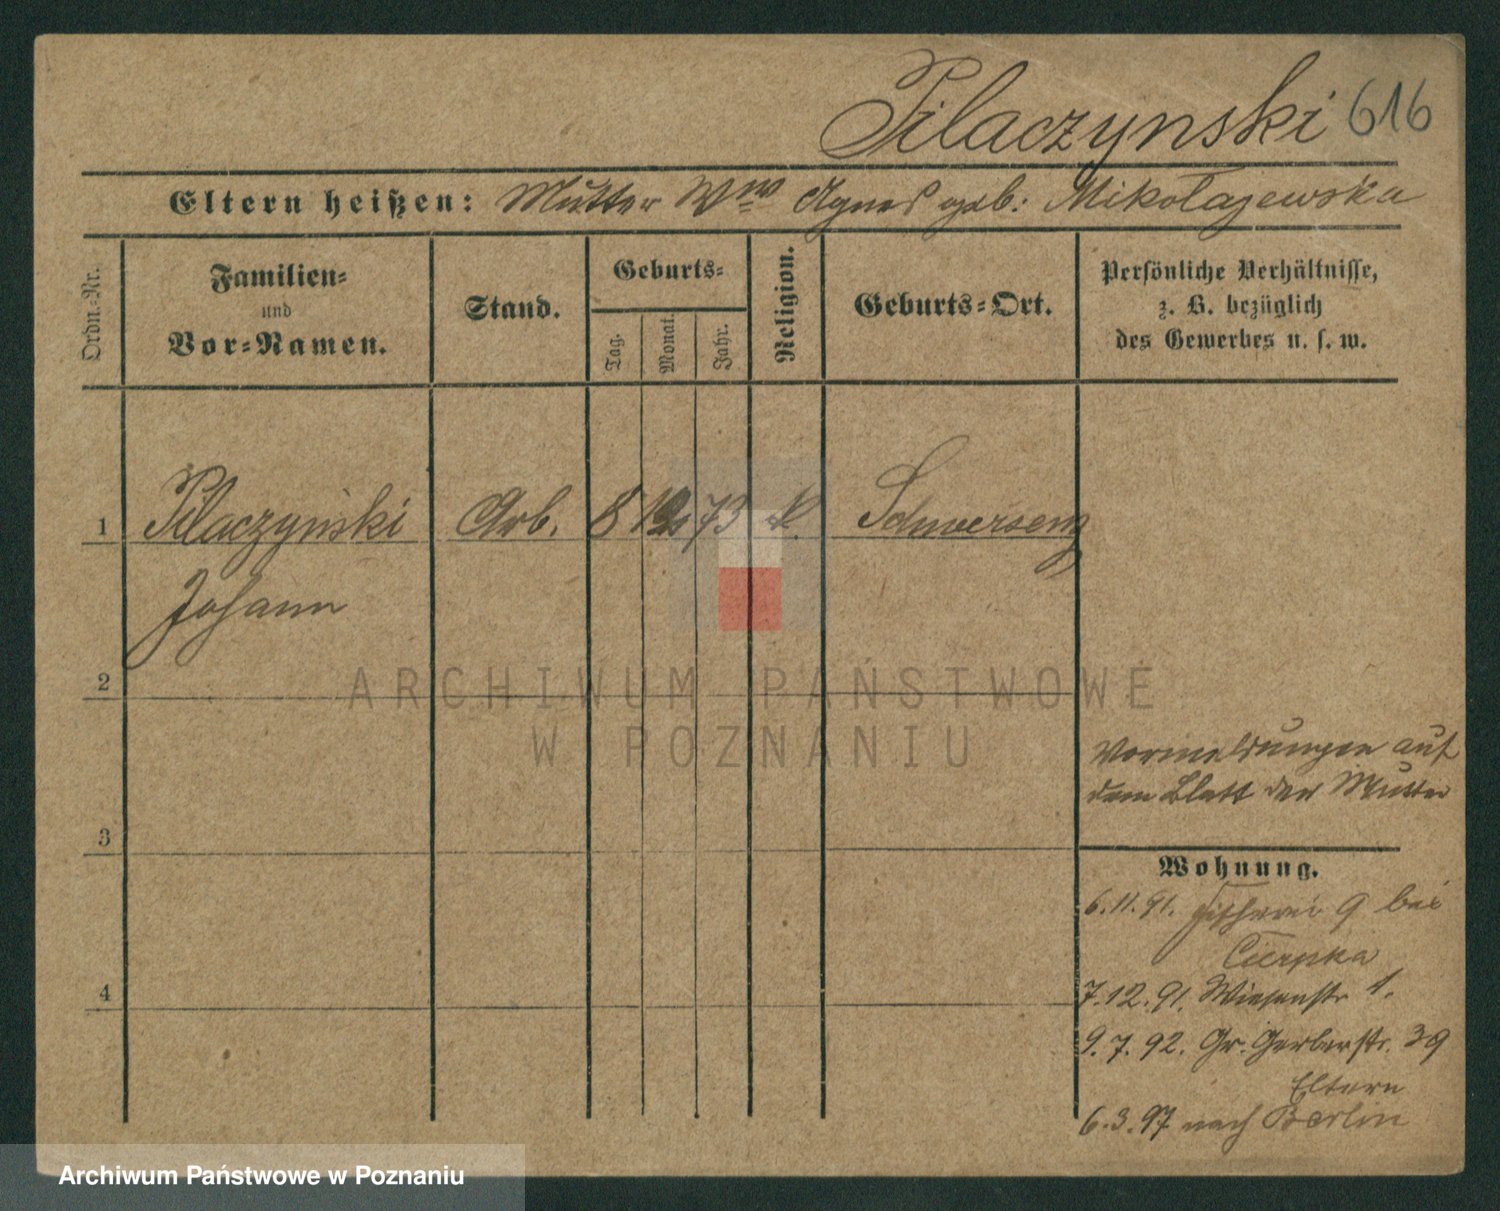 Pilaczynski 616
Eltern heißen: Mutter Wwe Agnes geb: Mikołajewska
Ordn.-Nr.
Familien-
und
Vor-Namen.
Stand.
Geburts-
Tag.
Monat.
Jahr.
Religion.
Geburts-Ort.
Persönliche Verhältnisse,
z. B. bezüglich
des Gewerbes u. s. w.
1 Pilaczyński Arb. 8 12 73 k. Schwersenz
Johann
2
ARCHIWUM PAŃSTWOWE
W POZNANIU
Vormeldungen auf
dem Blatt der Mutter
3
Wohnung.
6.11.91. Fischerei 9 bei
Cierpka
4
7.12.91. Wiesenstr 1.
9.7.92. Gr. Gerberstr. 39
Eltern
6.3.97 nach Berlin
Archiwum Państwowe w Poznaniu